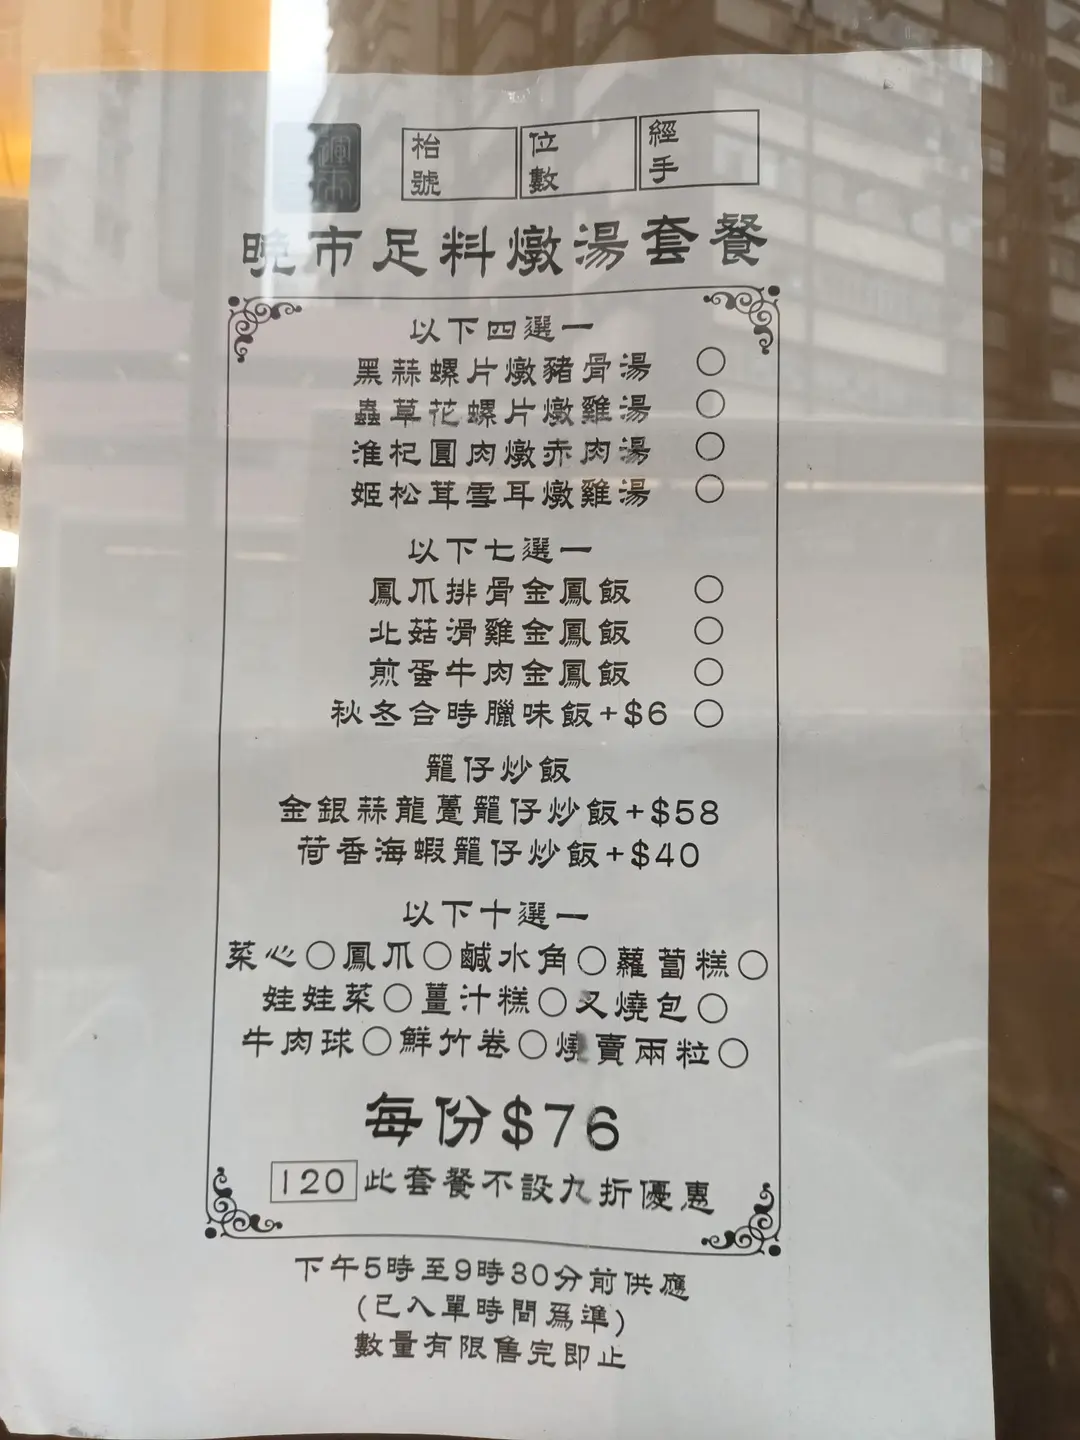 枱號 位數 經手
曉市足料燉湯套餐
以下四選一
黑蒜螺片燉豬骨湯 ○
蟲草花螺片燉雞湯 ○
淮杞圓肉燉赤肉湯 ○
姬松茸雪耳燉雞湯 ○
以下七選一
鳳爪排骨金鳳飯 ○
北菇滑雞金鳳飯 ○
煎蛋牛肉金鳳飯 ○
秋冬合時臘味飯+$6 ○
籠仔炒飯
金銀蒜龍躉籠仔炒飯+$58
荷香海蝦籠仔炒飯+$40
以下十選一
菜心○鳳爪○鹹水角○蘿蔔糕○
娃娃菜○薑汁糕○叉燒包○
牛肉球○鮮竹卷○燒賣兩粒○
每份$76
120 此套餐不設九折優惠
下午5時至9時30分前供應
(已入單時間為準)
數量有限售完即止